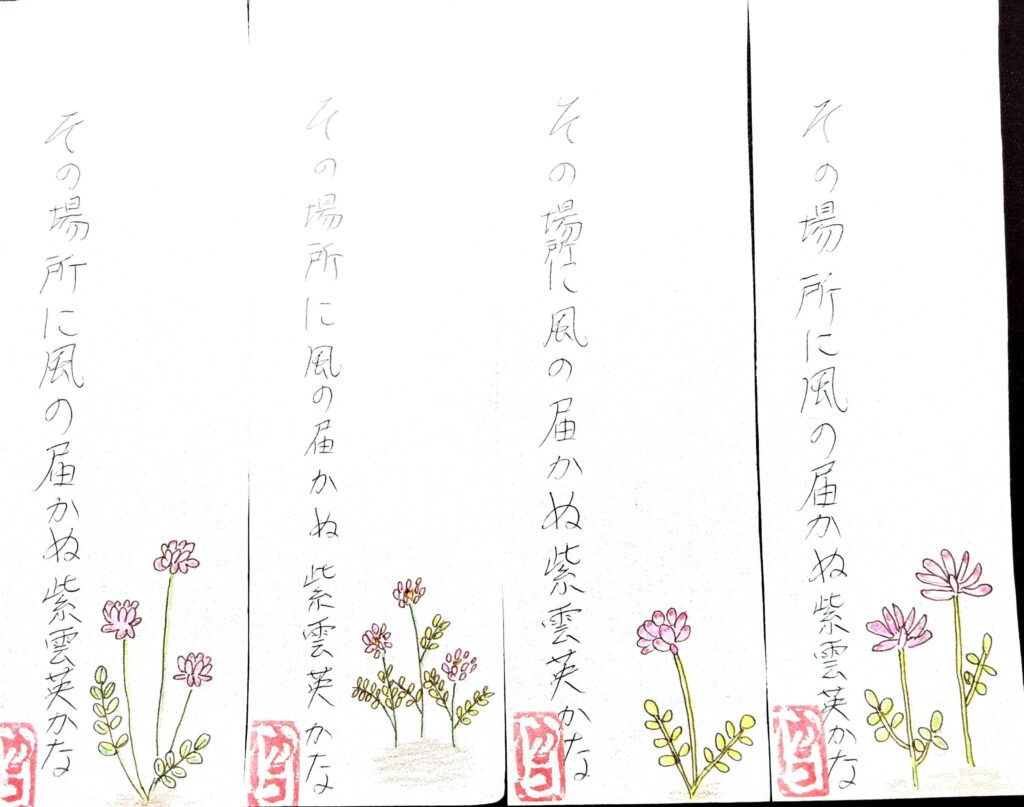 その場所に風の届かぬ紫雲英かな
その場所に風の届かぬ紫雲英かな
その場所に風の届かぬ紫雲英かな
その場所に風の届かぬ紫雲英かな